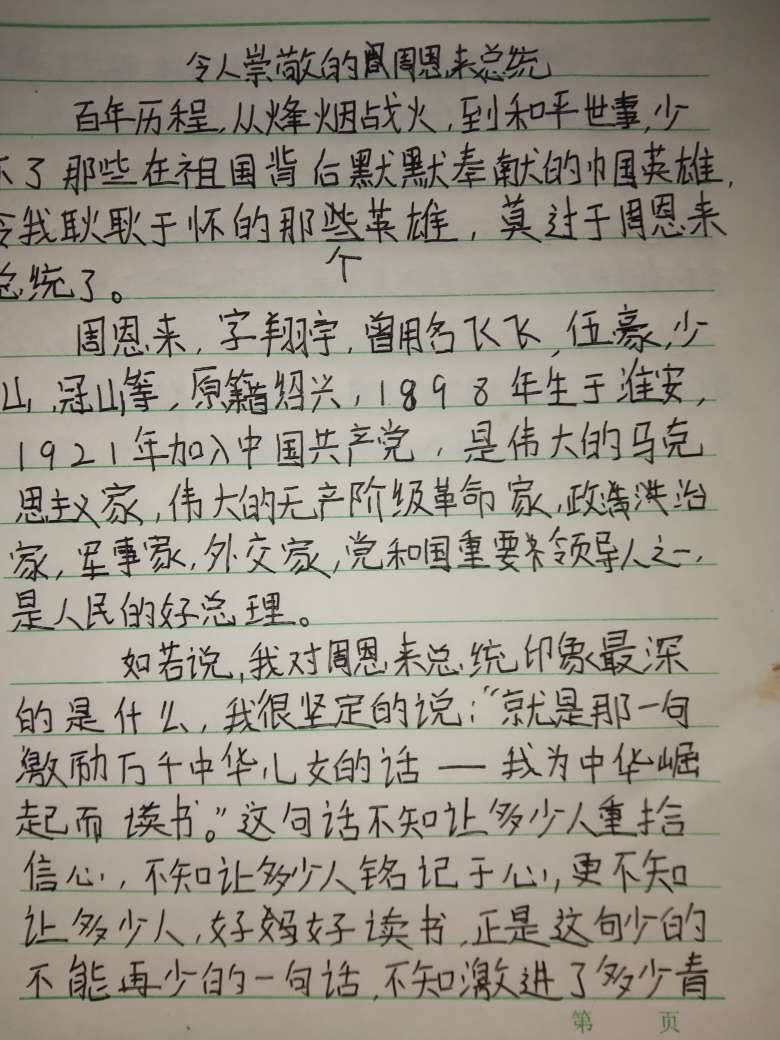 令人崇敬的周恩来总统
百年历程,从烽烟战火,到和平世事,少
不了那些在祖国背后默默奉献的巾帼英雄,
令我耿耿于怀的那个英雄,莫过于周恩来
总统了。
周恩来,字翔宇,曾用名飞飞,伍豪,少
山,冠山等,原籍绍兴,1898年生于淮安,
1921年加入中国共产党,是伟大的马克
思主义家,伟大的无产阶级革命家,政治
家,军事家,外交家,党和国重要领导人之一,
是人民的好总理。
如若说,我对周恩来总统印象最深
的是什么,我很坚定的说:“就是那一句
激励万千中华儿女的话——我为中华崛
起而读书。”这句话不知让多少人重拾
信心,不知让多少人铭记于心,更不知
让多少人,好好读书,正是这句少的
不能再少的一句话,不知激进了多少青
第 页